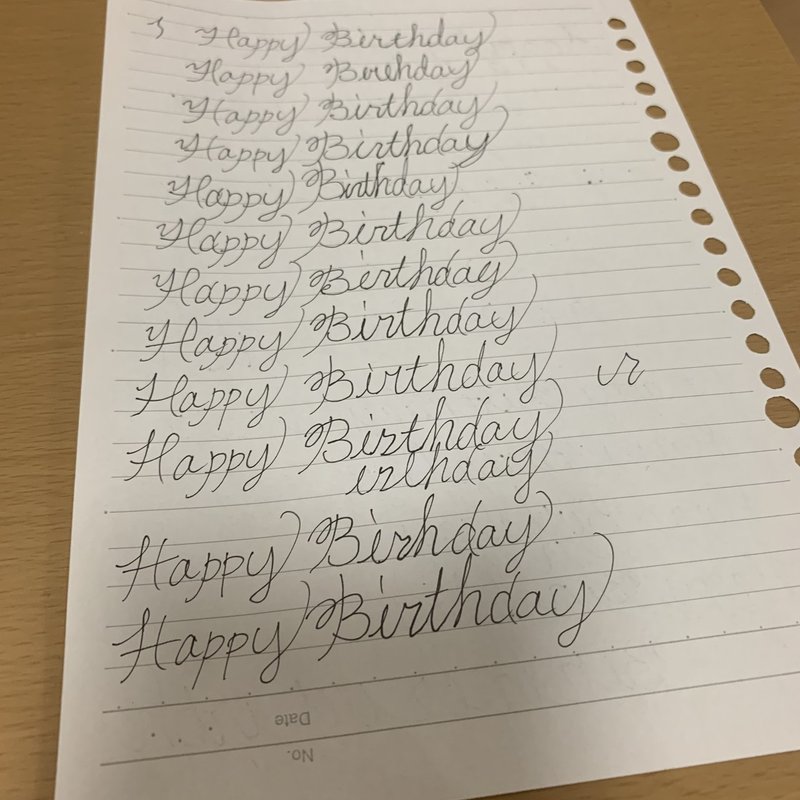 Happy Birthday
Happy Birthday
Happy Birthday
Happy Birthday
Happy Birthday
Happy Birthday
Happy Birthday
Happy Birthday
Happy Birthday ir
Happy Birthday
irthday
Happy Birhday
Happy Birthday
Date
No.